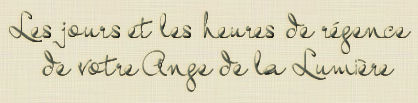 Les jours et les heures de régence
de votre Ange de la Lumière